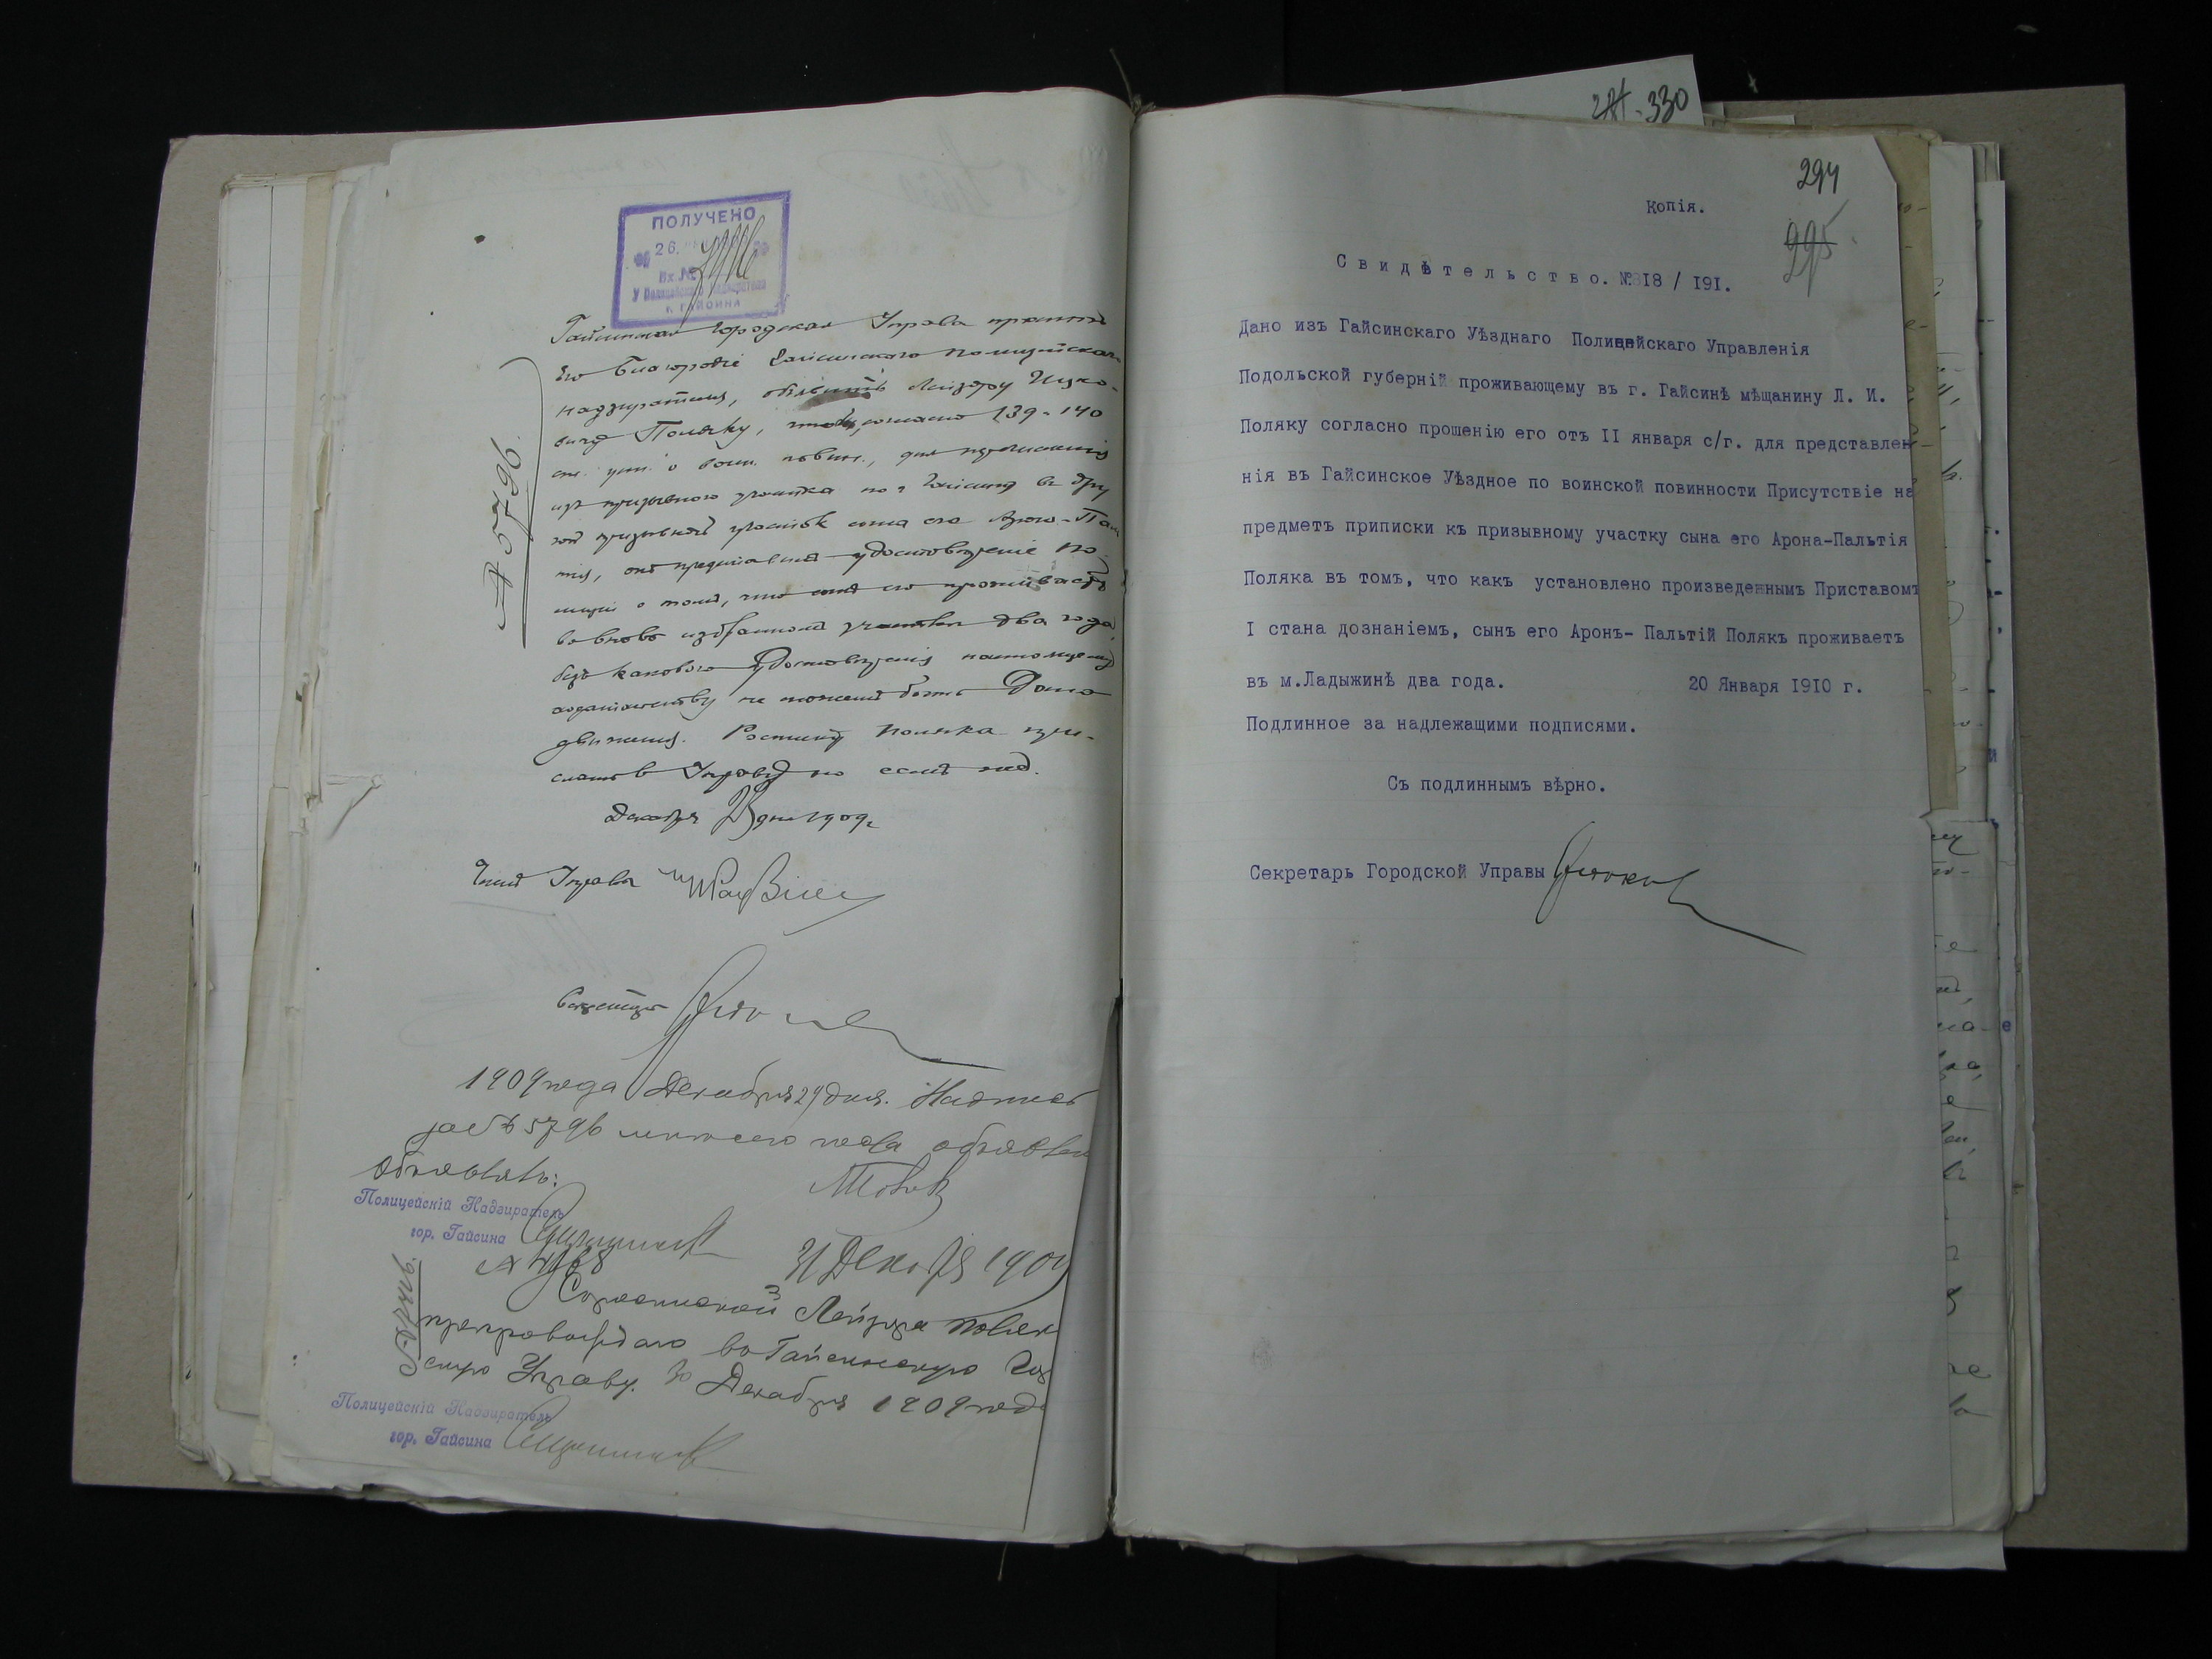 ПОЛУЧЕНО
26.
Вх. №
У Полицейскаго Надзирателя
г. ГАЙСИНА
№ 5796.
Гайсинская Городская Управа проситъ
Его Благородіе Гайсинскаго Полицейскаго
надзирателя, объявить Лейзеру Ицко-
вичу Поляку, что, согласно 139-140
ст. уст. о воин. повин., для перечисленія
изъ призывного участка по г. Гайсину въ дру
гой призывной участокъ сына его Арона-Паль
тія, онъ представилъ удостовѣреніе по
лиціи о томъ, что сынъ его проживаетъ
во вновь избранномъ участкѣ два года,
безъ каковаго удостовѣренія настоящему
ходатайству не можетъ быть дано
движенія. Росписку Поляка при-
слать в Управу по сему
Декабря 23 дня 1909 г.
Членъ Управы
Секретарь
1909 года Декабря 29 дня. Надпись
за № 5796 мнѣ сего года объявлен
Объявилъ:
Полицейскій Надзиратель
гор. Гайсина
31 Декабря 1909
Съ роспиской Лейзера Поляк
препровождаю въ Гайсинскую Гор
скую Управу. 30 Декабря 1909 года
Полицейскій Надзиратель
гор. Гайсина
330
294
295
Копія.
Свидѣтельство. № 318 / 191.
Дано изъ Гайсинскаго Уѣзднаго Полицейскаго Управленія
Подольской губерній проживающему въ г. Гайсинѣ мѣщанину Л. И.
Поляку согласно прошенію его отъ II января с/г. для представлен
нія въ Гайсинское Уѣздное по воинской повинности Присутствіе на
предметъ приписки къ призывному участку сына его Арона-Пальтія
Поляка въ томъ, что какъ установлено произведеннымъ Приставомъ
I стана дознаніемъ, сынъ его Аронъ- Пальтій Полякъ проживаетъ
въ м.Ладыжинѣ два года. 20 Января 1910 г.
Подлинное за надлежащими подписями.
Съ подлиннымъ вѣрно.
Секретарь Городской Управы